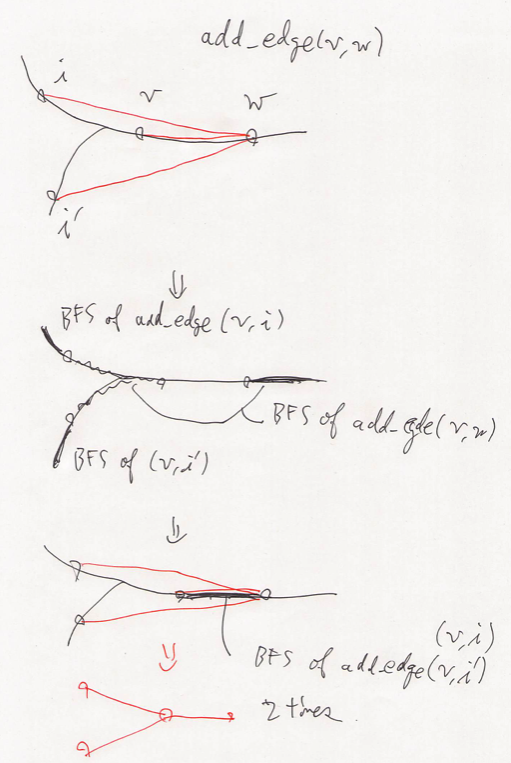 add_edge(v,w)
i
v
w
i'
⇓
BFS of add_edge (v,i)
BFS of add_egde(v,w)
BFS of (v,i')
⇓
(v,i)
BFS of add_edge(v,i')
⇓
2 times